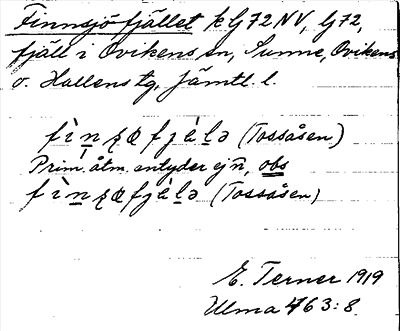 Finnsjöfjället k G72NV, G72,
fjäll i Ovikens sn, Sunne, Ovikens
o. Hallens tg, Jämtl. l.
(Tossåsen)
Prim. åtm. antyder ej ñ, obs
(Tossåsen)
E. Terner 1919
Ulma 463:8.